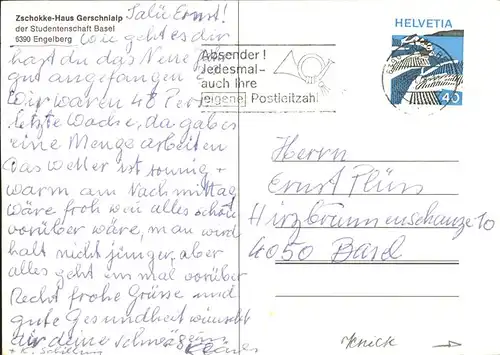 Zschokke-Haus Gerschnialp
der Studentenschaft Basel
6390 Engelberg
Salü Ernst!
Wie geht es dir
hast du das Neue Jahr
gut angefangen
Wir waren 48 Pers
letzte Woche, da gab es
eine Menge arbeiten
Das Wetter ist sonnig +
warm am Nachmittag
wäre froh wen alles schon
vorüber wäre, man wird
halt nicht jünger, aber
alles geht einmal vorüber
Recht frohe Grüsse und
gute Gesundheit wünscht
dir deine
HELVETIA
40
Absender!
Jedesmal-
auch Ihre
eigene Postleitzahl
Herrn
Ernst Plüss
Hirzbrunnenschanze 10
4050 Basel